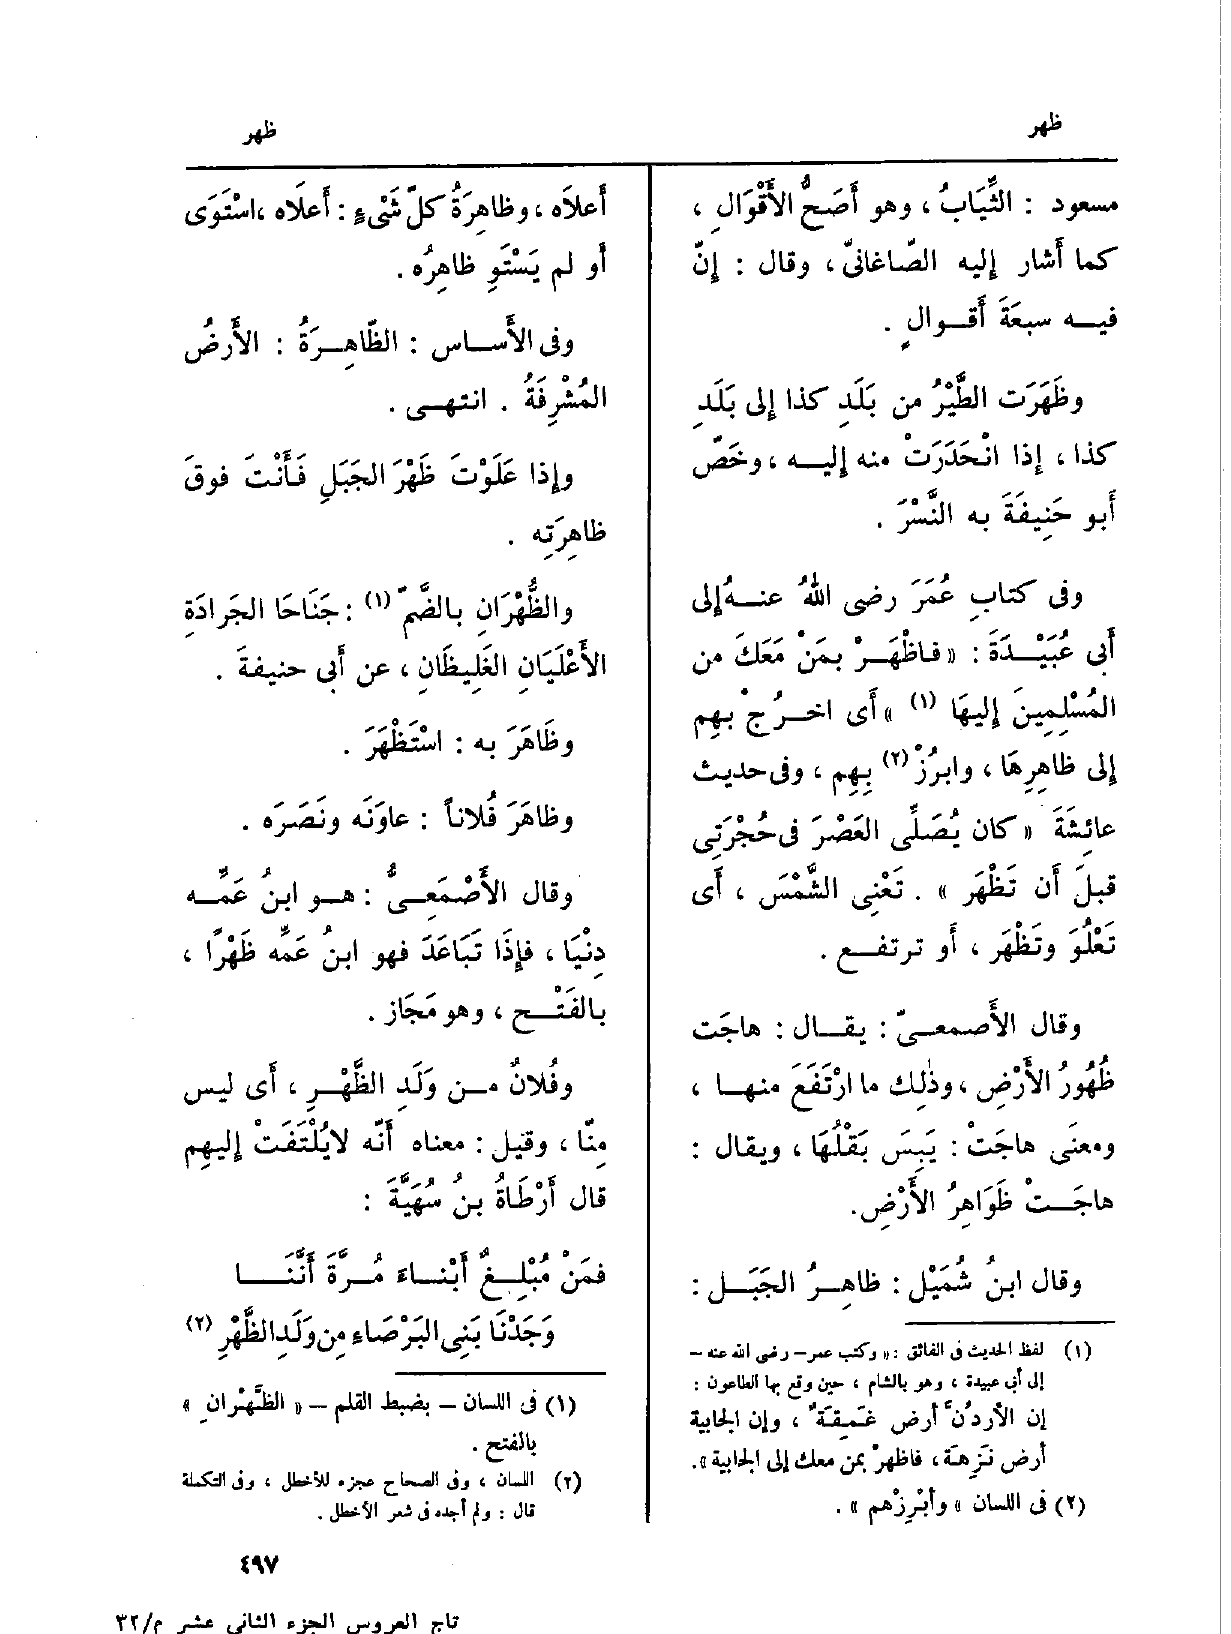 ظهر
ظهر
مسعود : الثِّيَابُ ، وهو أَصَحُّ الأَقْوَالِ ،
كما أَشار إليه الصّاغانىّ ، وقال : إِنّ
فيه سبعَةَ أَقوالٍ .
وظَهَرَت الطَّيْرُ من بَلَدِ كذا إلى بَلَدِ
كذا ، إذا انْحَدَرَتْ منه إليه ، وخَصّ
أَبو حَنِيفَةَ به النَّسْرَ .
وفى كتابِ عُمَرَ رضى اللهُ عنهُ إلى
أَبى عُبَيْدَةَ : « فاظْهَرْ بمَنْ مَعَكَ من
المُسْلِمِينَ إليهَا (١) » أى اخرُجْ بهِم
إلى ظاهِرِهَا ، وابرُزْ (٢) بِهِم ، وفى حديث
عائِشَةَ « كان يُصَلِّى العَصْرَ فى حُجْرَتِى
قبلَ أَن تَظْهَر » . تَعْنِى الشَّمْسَ ، أَى
تَعْلُوَ وتَظْهَر ، أَو ترتفع .
وقال الأَصمعىّ : يقال : هاجَت
ظُهُورُ الأَرْضِ ، وذٰلك ما ارْتَفَعَ منها ،
ومعنَى هاجَتْ : يَبِسَ بَقْلُهَا ، ويقال :
هاجَتْ ظَوَاهِرُ الأَرْضِ.
وقال ابنُ شُمَيْل : ظاهِرُ الجَبَل :
(١) لفظ الحديث فى الفائق : « وكتب عمر– رضى الله عنه –
إلى أبى عبيدة ، وهو بالشام ، حين وقع بها الطاعون :
إن الأردُنّ أرض غَمِقَة ، وإن الجابية
أرض نَزِهَة ، فاظهرْ بمن معك إلى الجابية ».
(٢) فى اللسان « وأبْرِزْهم » .
أَعلاَه ، وظاهِرَةُ كلّ شَىْءٍ : أَعلاَه ، اسْتَوَى
أَو لم يَسْتَوِ ظاهِرُه .
وفى الأَساس : الظّاهِرَةُ : الأَرضُ
المُشْرِفَةُ . انتهى .
وإذا عَلَوْتَ ظَهْرَ الجَبَلِ فَأَنْتَ فوقَ
ظاهِرَتِه .
والظُّهْرَانِ بالضَّمّ (١) : جَنَاحَا الجَرادَةِ
الأَعْلَيَانِ الغَلِيظَانِ ، عن أَبى حنيفةَ .
وظَاهَرَ به : اسْتَظْهَرَ .
وظاهَرَ فُلاناً : عاوَنَه ونَصَرَه .
وقال الأَصْمَعِىُّ : هو ابنُ عَمِّه
دِنْيَا ، فإِذَا تَبَاعَدَ فهو ابنُ عَمِّه ظَهْرًا ،
بالفَتْح ، وهو مَجَاز .
وفُلانٌ من وَلَدِ الظَّهْرِ ، أَى ليس
مِنّا ، وقيل : معناه أَنّه لايُلْتَفَتْ إليهِم
قال أَرْطَاةُ بنُ سُهَيَّةَ :
فمَنْ مُبْلِغٌ أَبْناءَ مُرَّةَ أَنَّنَا
وَجَدْنَا بَنِى البَرْصَاءِ مِن وَلَدِ الظَّهْرِ (٢)
(١) فى اللسان – بضبط القلم – « الظَّهْران »
بالفتح .
(٢) اللسان ، وفى الصحاح عجزه للأخطل ، وفى التكملة
قال : ولم أجده فى شعر الأخطل .
٤٩٧
تاج العروس الجزء الثانى عشر م/٣٢